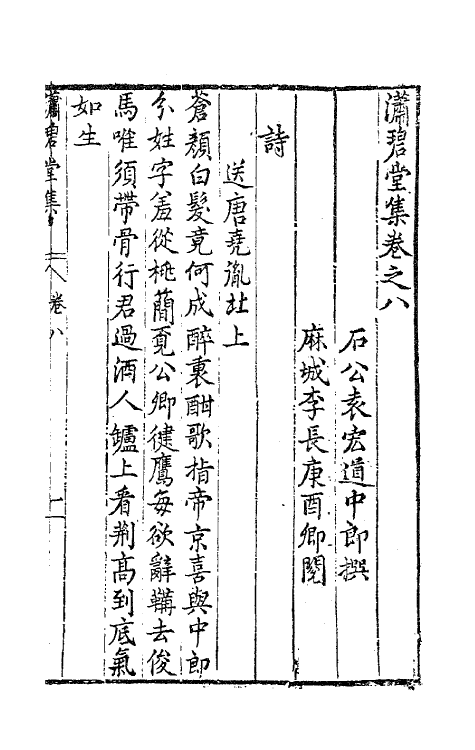 瀟碧堂集卷之八
石公袁宏道中郎撰
麻城李長庚酉卿閱
詩
送唐堯胤北上
蒼顏白髮竟何成醉裏酣歌指帝京喜與中郎
分姓字羞從桃蘭覓公卿健鷹每欲辭鞲去俊
馬唯須帶骨行君過酒人鑪上看荆高到底氣
如生
瀟碧堂集
卷八
一